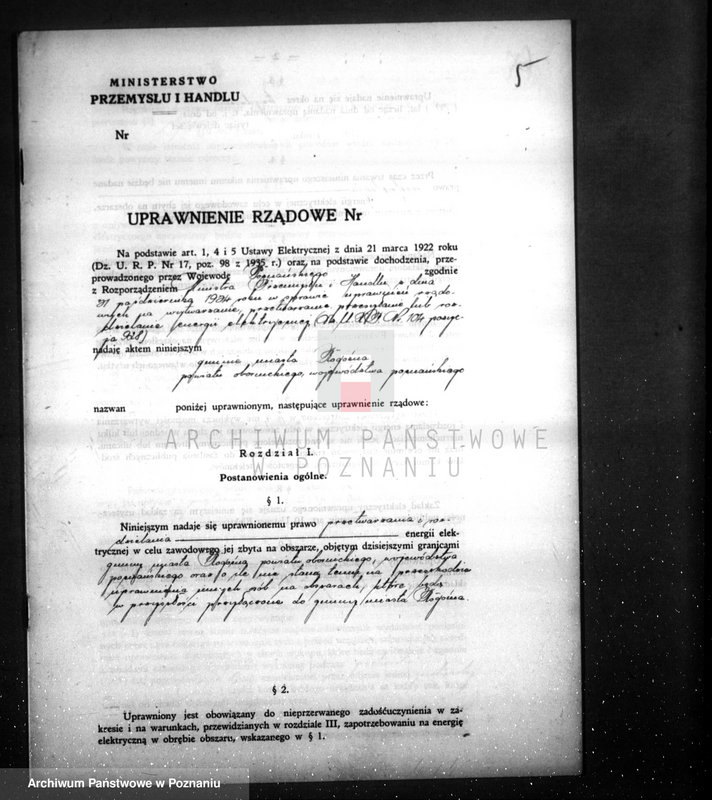 5
MINISTERSTWO
PRZEMYSŁU I HANDLU
Nr
UPRAWNIENIE RZĄDOWE Nr
Na podstawie art. 1, 4 i 5 Ustawy Elektrycznej z dnia 21 marca 1922 roku
(Dz. U. R. P. Nr 17, poz. 98 z 1935 r.) oraz na podstawie dochodzenia, prze-
prowadzonego przez Wojewodę Poznańskiego zgodnie
z Rozporządzeniem Ministra Przemysłu i Handlu z dnia
października 1934 roku w sprawie uprawnień rządo-
wych na wytwarzanie, przetwarzanie, przesyłanie lub roz-
dzielanie energii elektrycznej (Dz. U. R. P. Nr. 104 pozyc-
ja 928)
nadaję aktem niniejszym
gminie miasta Rogoźna
powiatu obornickiego, województwa poznańskiego
nazwan poniżej uprawnionym, następujące uprawnienie rządowe:
ARCHIWUM PAŃSTWOWE
W POZNANIU
Rozdział I.
Postanowienia ogólne.
§ 1.
Niniejszym nadaje się uprawnionemu prawo przetwarzania i roz-
dzielania energii elek-
trycznej w celu zawodowego jej zbytu na obszarze, objętym dzisiejszymi granicami
gminy miasta Rogoźna powiatu obornickiego, województwa
poznańskiego oraz o ile nie staną temu na przeszkodzie
uprawnienia innych osób na obszarach, które będą
w przyszłości przyłączone do gminy miasta Rogoźna.
§ 2.
Uprawniony jest obowiązany do nieprzerwanego zadośćuczynienia w za-
kresie i na warunkach, przewidzianych w rozdziale III, zapotrzebowaniu na energię
elektryczną w obrębie obszaru, wskazanego w § 1.
Archiwum Państwowe w Poznaniu